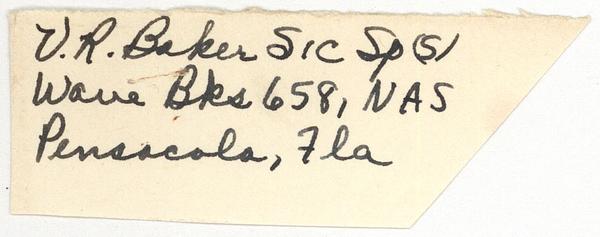 V.R. Baker S1C Sp(S)
Wave Bks 658, NAS
Pensacola, Fla